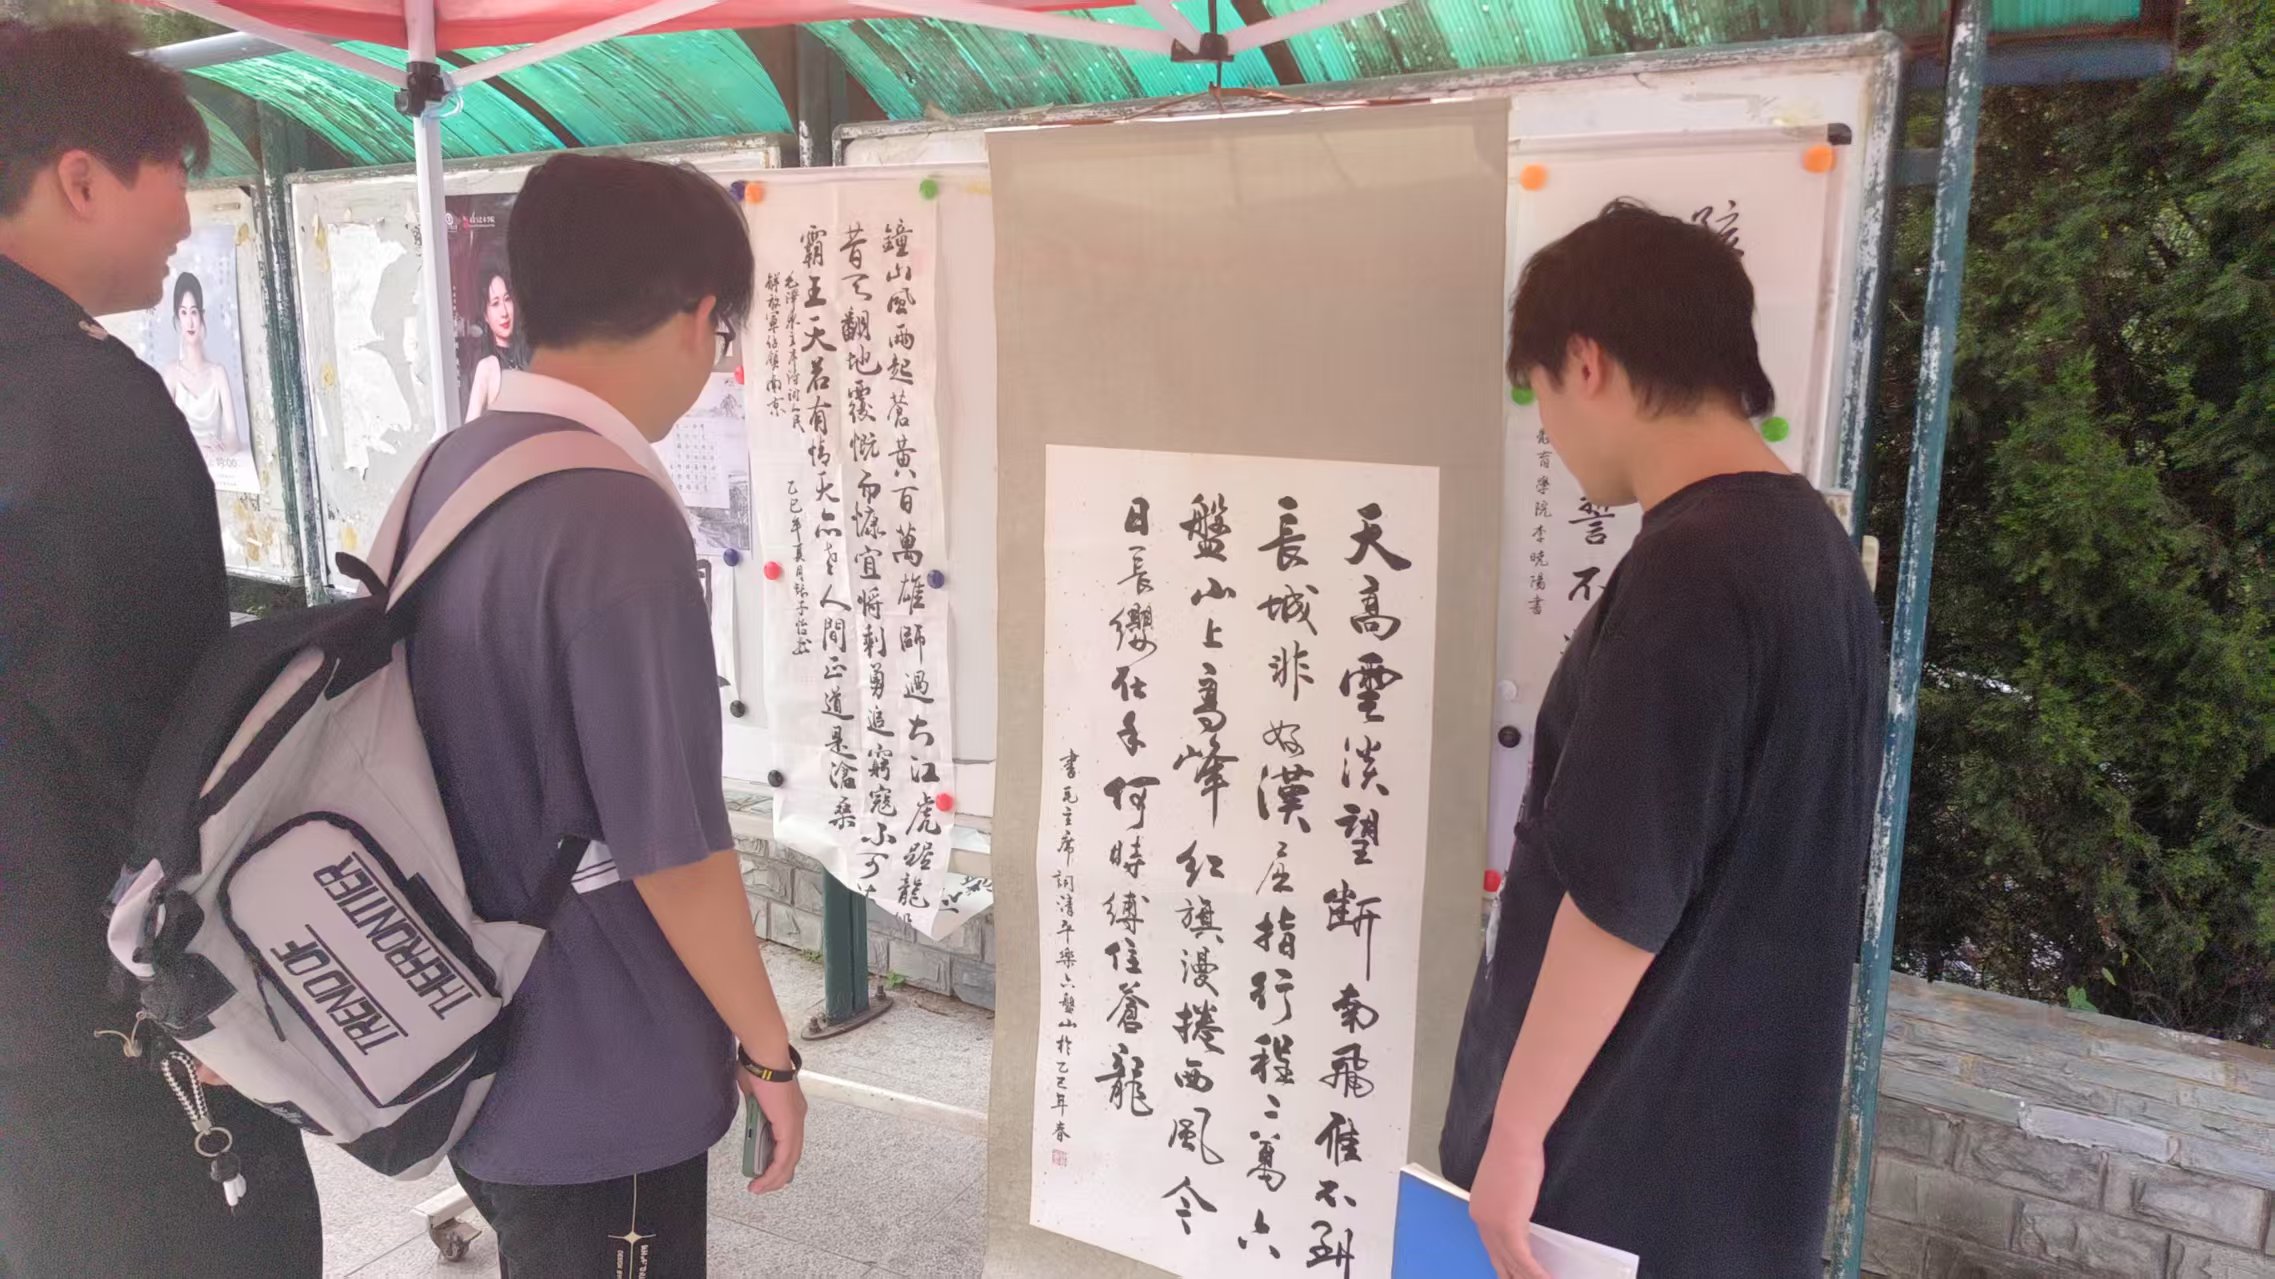 天高雲淡望斷南飛雁不到
長城非好漢屈指行程二萬六
盤山上高峰紅旗漫捲西風今
日長纓在手何時縛住蒼龍
書毛主席詞清平樂六盤山於乙巳年春
鐘山風雨起蒼黃百萬雄師過大江虎踞龍
昔天翻地覆慨而慷宜將剩勇追窮寇不可沽
霸王天若有情天亦老人間正道是滄桑
毛澤東主席詩詞人民
解放軍佔領南京
乙巳年夏月
誓不
育學院李曉陽書
TREND OF
THE FRONTIER